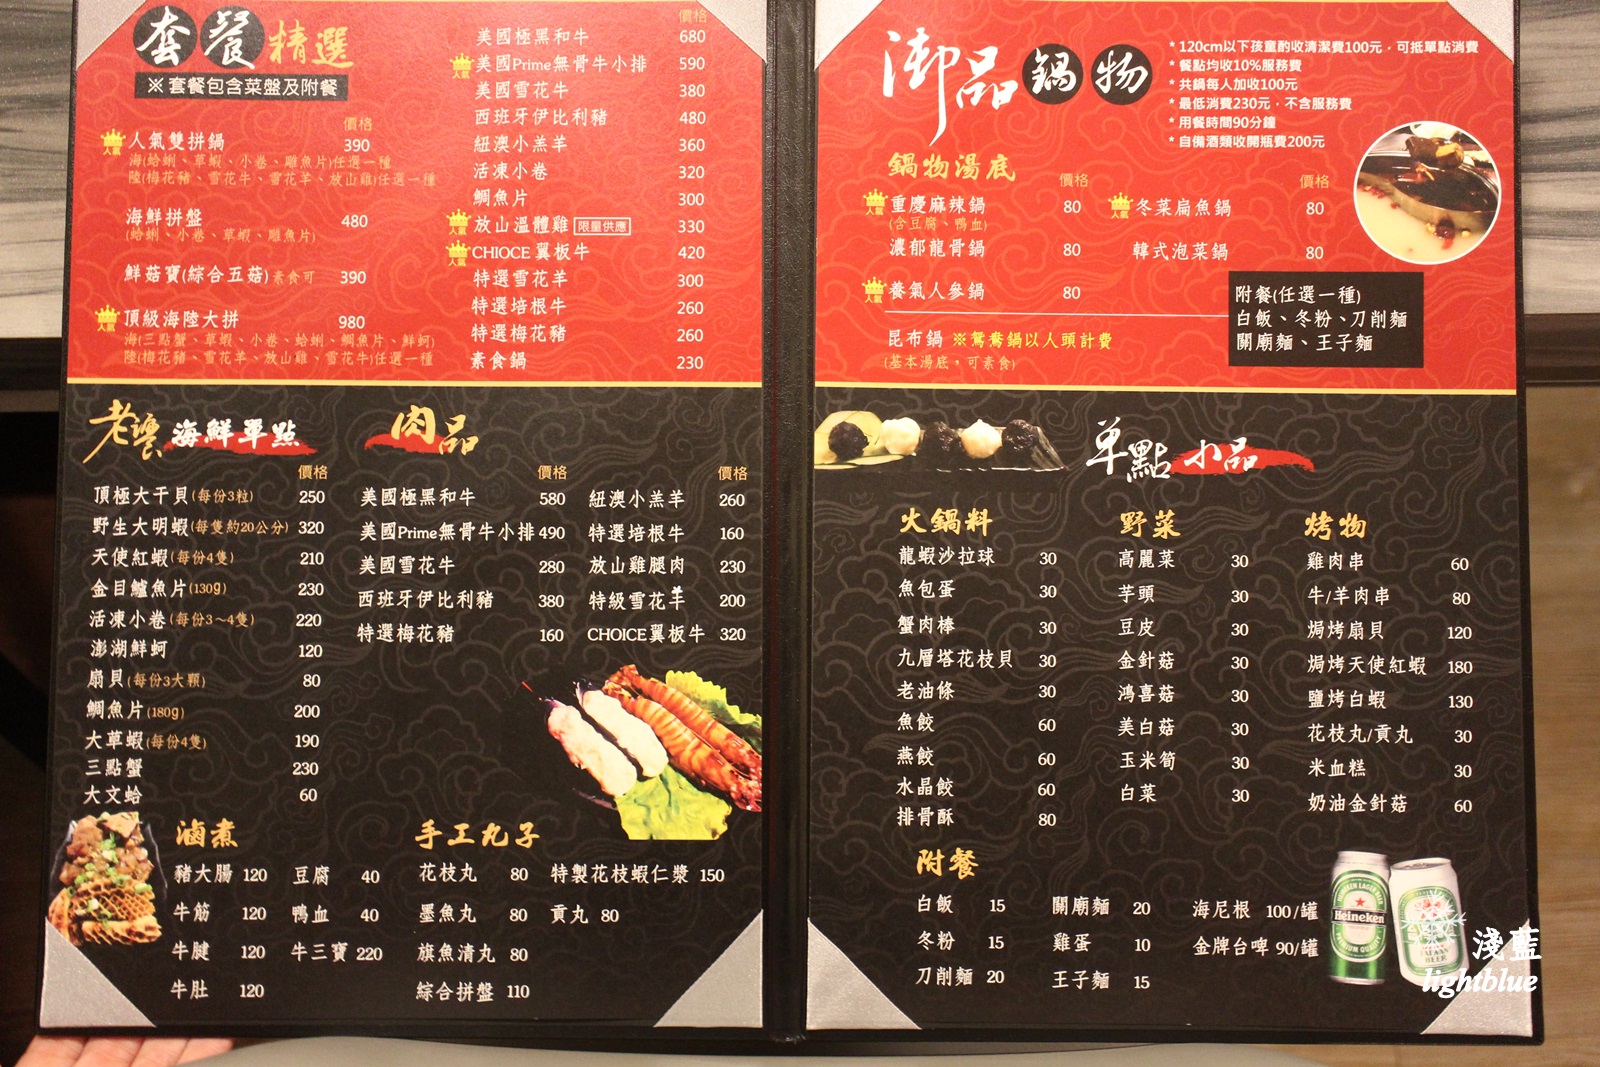 套餐精選
※套餐包含菜盤及附餐
價格
人氣
人氣雙拼鍋 390
海(蛤蜊、草蝦、小卷、雕魚片)任選一種
陸(梅花豬、雪花牛、雪花羊、放山雞)任選一種
海鮮拼盤 480
(蛤蜊、小卷、草蝦、雕魚片)
鮮菇寶(綜合五菇)素食可 390
人氣
頂級海陸大拼 980
海(三點蟹、草蝦、小卷、蛤蜊、鯛魚片、鮮蚵)
陸(梅花豬、雪花羊、放山雞、雪花牛)任選一種
價格
美國極黑和牛 680
人氣
美國Prime無骨牛小排 590
美國雪花牛 380
西班牙伊比利豬 480
紐澳小羔羊 360
活凍小卷 320
鯛魚片 300
人氣
放山溫體雞 限量供應 330
人氣
CHIOCE 翼板牛 420
特選雪花羊 300
特選培根牛 260
特選梅花豬 260
素食鍋 230
老饕海鮮單點
價格
頂極大干貝(每份3粒) 250
野生大明蝦(每隻約20公分) 320
天使紅蝦(每份4隻) 210
金目鱸魚片(130g) 230
活凍小卷(每份3～4隻) 220
澎湖鮮蚵 120
扇貝(每份3大顆) 80
鯛魚片(180g) 200
大草蝦(每份4隻) 190
三點蟹 230
大文蛤 60
肉品
價格
美國極黑和牛 580
美國Prime無骨牛小排 490
美國雪花牛 280
西班牙伊比利豬 380
特選梅花豬 160
價格
紐澳小羔羊 260
特選培根牛 160
放山雞腿肉 230
特級雪花羊 200
CHOICE翼板牛 320
滷煮
豬大腸 120
牛筋 120
牛腱 120
牛肚 120
豆腐 40
鴨血 40
牛三寶 220
手工丸子
花枝丸 80
墨魚丸 80
旗魚清丸 80
綜合拼盤 110
特製花枝蝦仁漿 150
貢丸 80
御品鍋物
* 120cm以下孩童酌收清潔費100元，可抵單點消費
* 餐點均收10%服務費
* 共鍋每人加收100元
* 最低消費230元，不含服務費
* 用餐時間90分鐘
* 自備酒類收開瓶費200元
鍋物湯底
價格
人氣
重慶麻辣鍋 80
(含豆腐、鴨血)
濃郁龍骨鍋 80
人氣
養氣人參鍋 80
昆布鍋 ※鴛鴦鍋以人頭計費
(基本湯底，可素食)
價格
人氣
冬菜扁魚鍋 80
韓式泡菜鍋 80
附餐(任選一種)
白飯、冬粉、刀削麵
關廟麵、王子麵
單點小品
火鍋料
龍蝦沙拉球 30
魚包蛋 30
蟹肉棒 30
九層塔花枝貝 30
老油條 30
魚餃 60
燕餃 60
水晶餃 60
排骨酥 80
野菜
高麗菜 30
芋頭 30
豆皮 30
金針菇 30
鴻喜菇 30
美白菇 30
玉米筍 30
白菜 30
烤物
雞肉串 60
牛/羊肉串 80
焗烤扇貝 120
焗烤天使紅蝦 180
鹽烤白蝦 130
花枝丸/貢丸 30
米血糕 30
奶油金針菇 60
附餐
白飯 15
冬粉 15
刀削麵 20
關廟麵 20
雞蛋 10
王子麵 15
海尼根 100/罐
金牌台啤 90/罐
Heineken
淺藍
lightblue